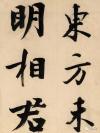 東方未
明相若